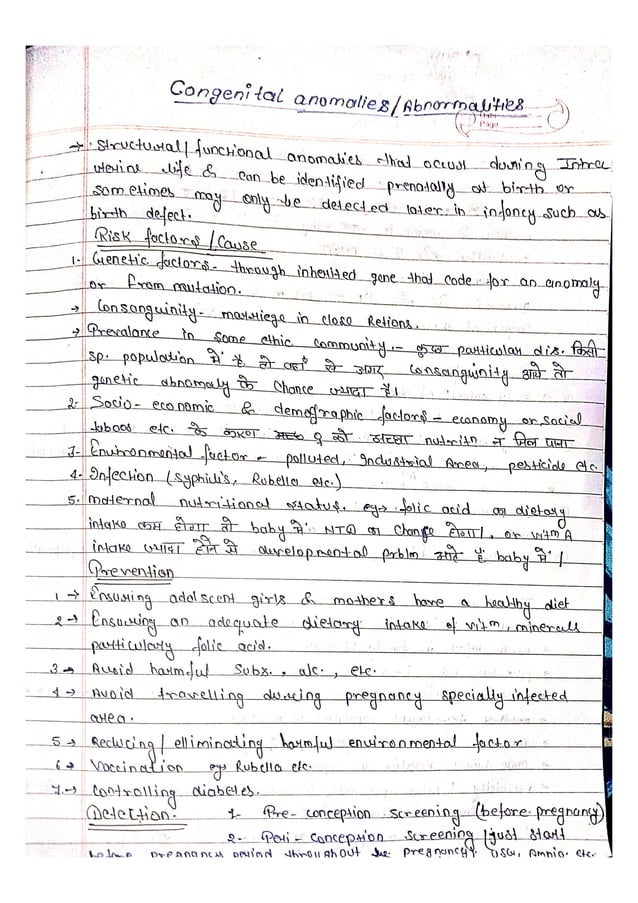 Congenital anomalies/Abnormalities
Date
Page
→ Structural/functional anomalies that occur during Intra
uterine life & can be identified prenatally at birth or
sometimes may only be detected later in infancy such as
birth defect.
Risk factors/Cause
1. Genetic factors- through inherited gene that code for an anomaly
or from mutation.
→ Consanguinity- marriege in close Retions.
→ Prevalance in some ethic community.- कुछ particular dis. किसी
sp. population में है तो वहाँ से अगर consanguinity आये तो
genetic abnomaly के chance ज्यादा है।
2. Socio-economic & demographic factors - economy or social
taboos etc. के कारण को nutritn न मिल पाना
3- Environmental factor - polluted, Industrial Area, pesticide etc.
4- Infection (syphilis, Rubella etc.)
5. maternal nutritional status. eg→ folic acid का dietary
intake कम होगा तो baby में NTD का change होगा, or vitm A
intake ज्यादा होने से developmental prblm आते हैं baby में।
Prevention
1 → Ensuring adolscent girls & mothers have a healthy diet
2 → Ensuring an adequate dietary intake of vitm, minerals
particulary folic acid.
3 → Avoid harmful subs., alc., etc.
4 → Avoid travelling during pregnancy specially infected
area.
5 → Reducing/elliminading harmful environmental factor
6 → Vaccination eg→ Rubella etc.
7 → Controlling diabetes.
Detection. 1- Pre-conception screening (before pregnancy)
2- Peri-conception screening (just start
before pregnancy period throughout the pregnancy). USG, Amnio. etc.